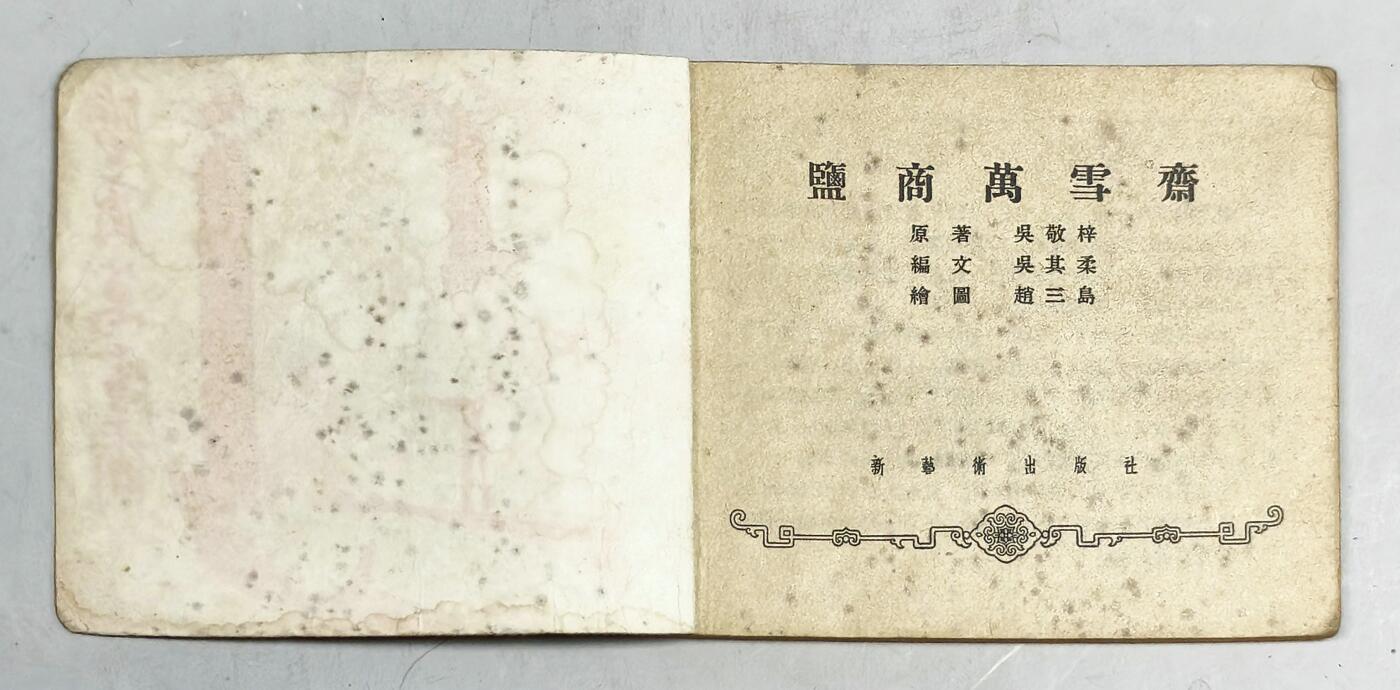 鹽商萬雪齋
原著 吳敬梓
編文 吳其柔
繪圖 趙三島
新藝術出版社